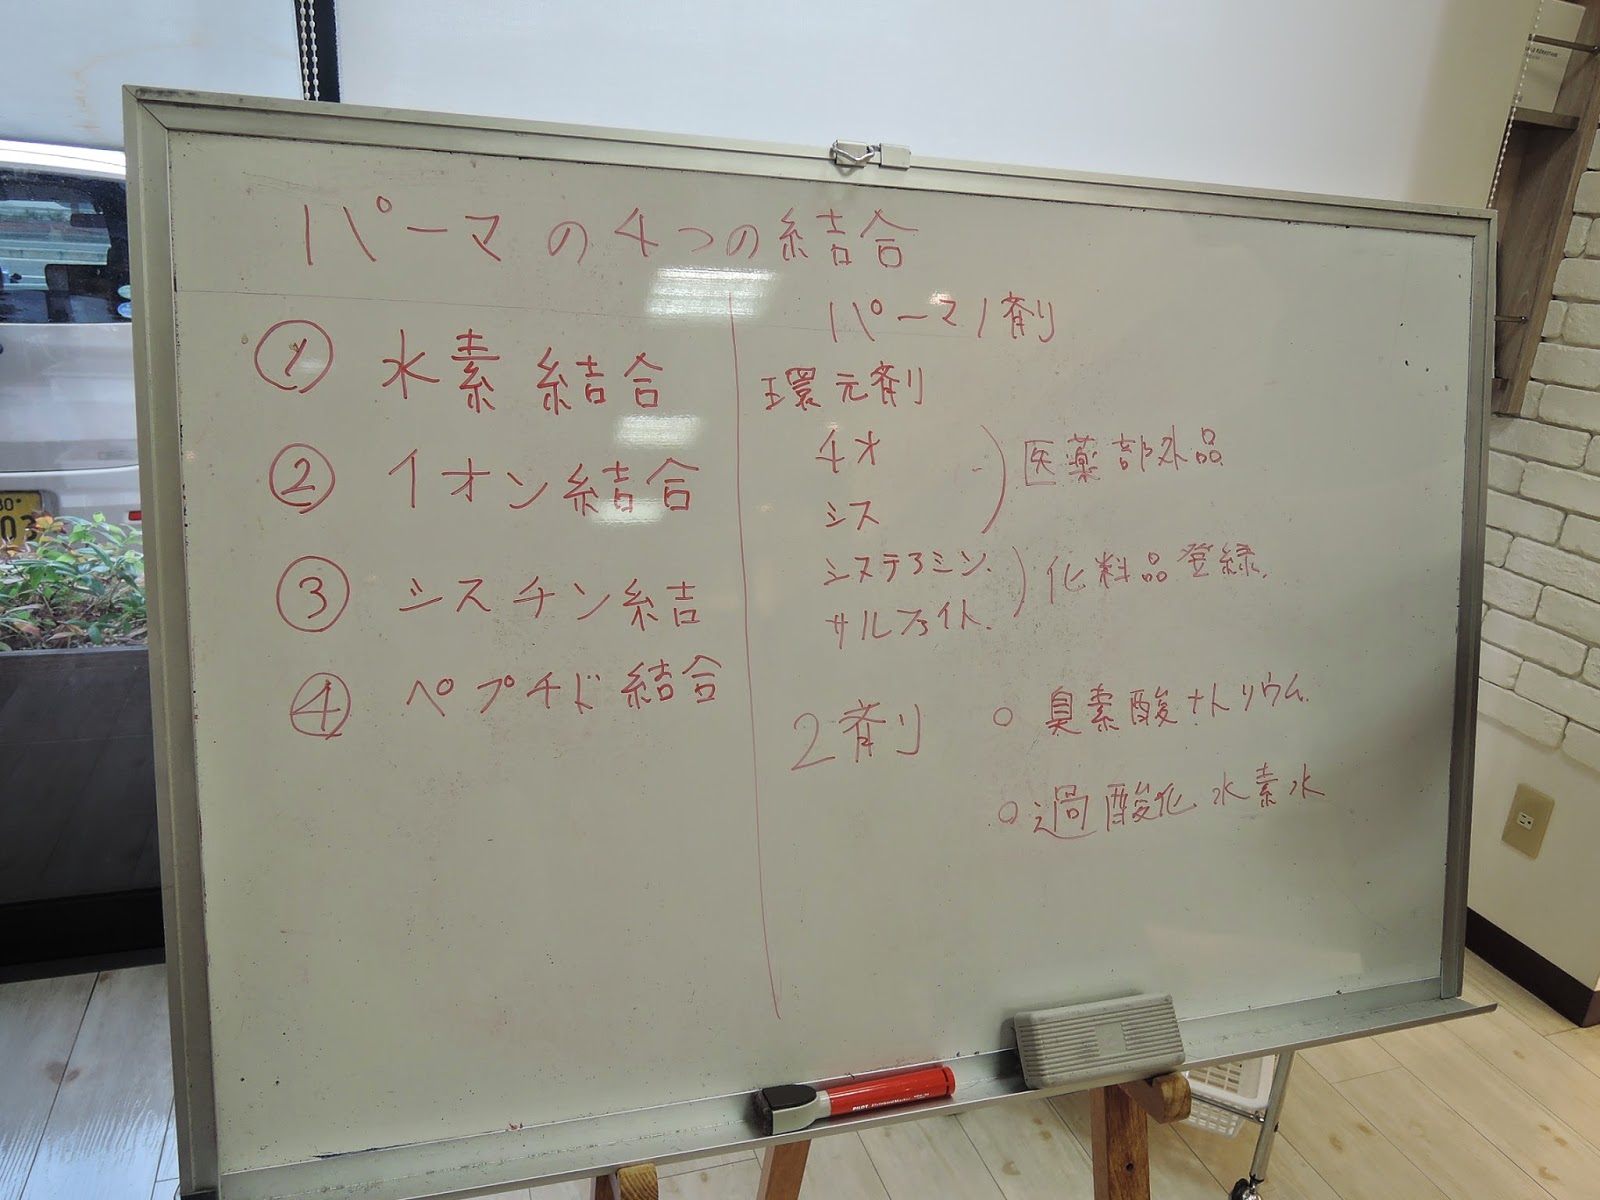 パーマの4つの結合
① 水素結合
② イオン結合
③ シスチン結
④ ペプチド結合
パーマ1剤
環元剤
チオ
シス
医薬部外品
システアミン.
サルファイト.
化料品登録.
2剤
○ 臭素酸ナトリウム.
○ 過酸化水素水
PILOT
03